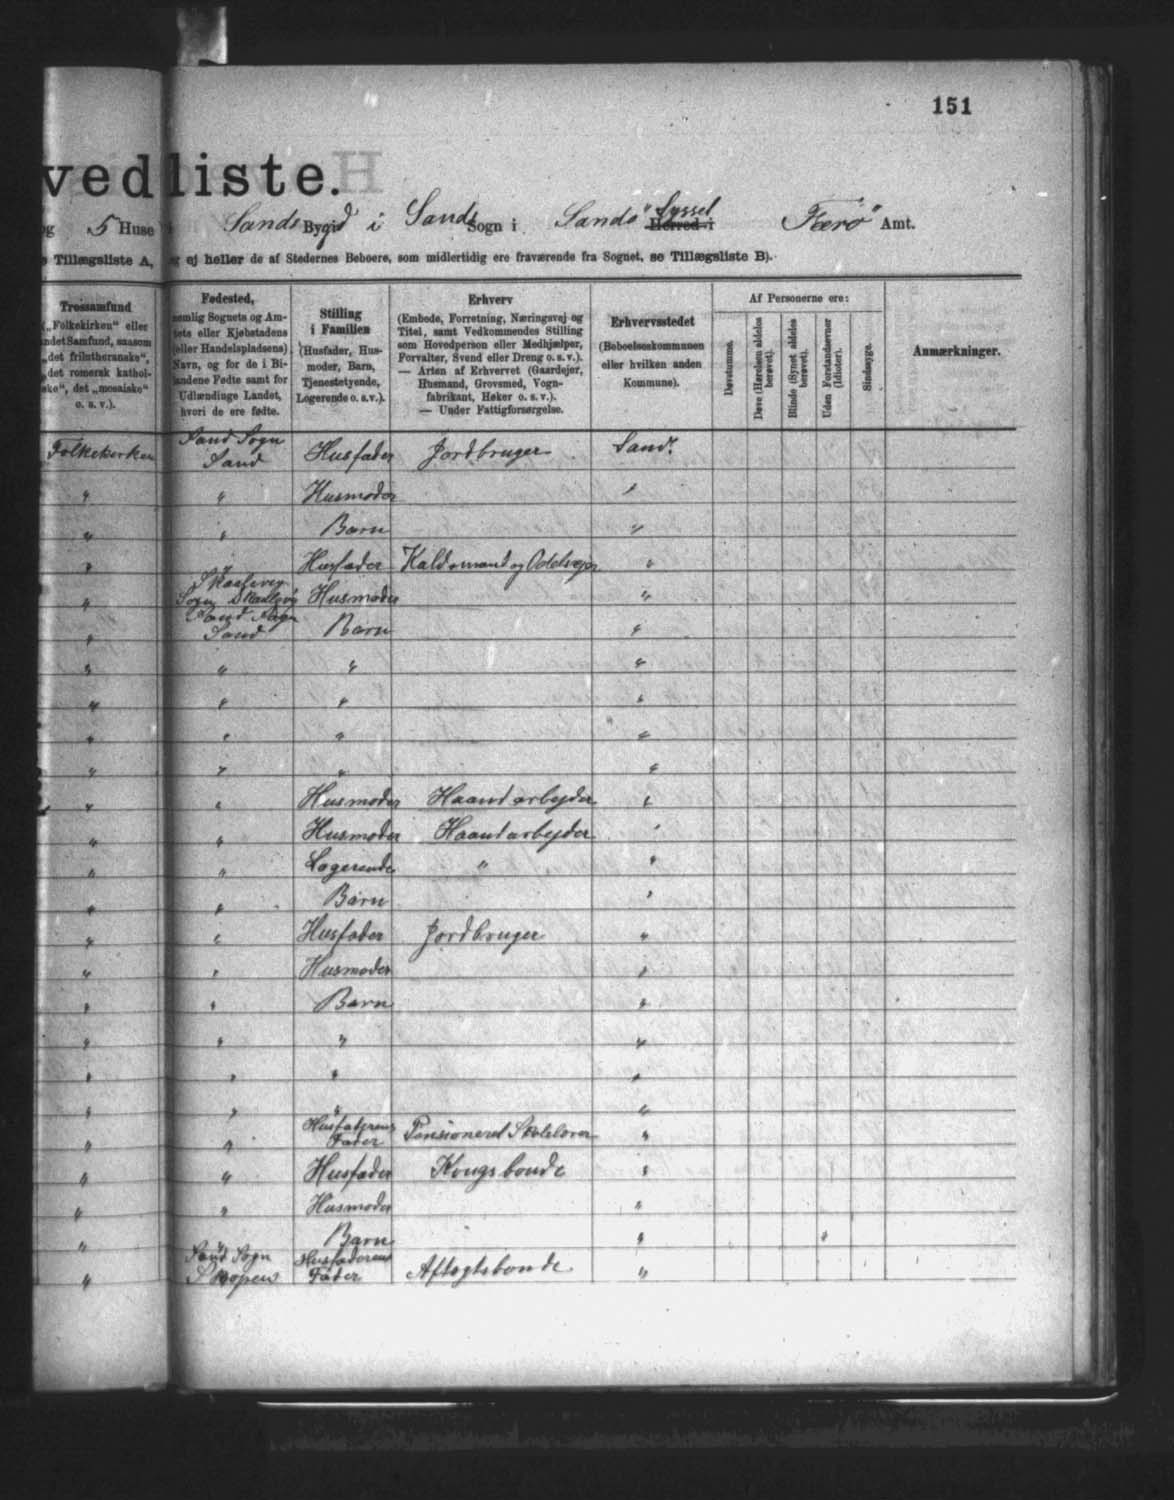 151
vedliste.
og 5 Huse i Sands Bygd i Sands Sogn i Sandø Syssel Herred i Færø Amt.
e Tillægsliste A, og ej heller de af Stedernes Beboere, som midlertidig ere fraværende fra Sognet, se Tillægsliste B).
Trossamfund
(„Folkekirken“ eller
andet Samfund, saasom
„det frilutheranske“,
„det romersk kathol-
ske“, det „mosaiske“
o. s. v.).
Fødested,
nemlig Sognets og Am-
tets eller Kjøbstadens
(eller Handelspladsens)
Navn, og for de i Bi-
landene Fødte samt for
Udlændinge Landet,
hvori de ere fødte.
Stilling
i Familien
(Husfader, Hus-
moder, Barn,
Tjenestetyende,
Logerende o. s.v.).
Erhverv
(Embede, Forretning, Næringsvej og
Titel, samt Vedkommendes Stilling
som Hovedperson eller Medhjælper,
Forvalter, Svend eller Dreng o. s. v.).
— Arten af Erhvervet (Gaardejer,
Husmand, Grovsmed, Vogn-
fabrikant, Høker o. s. v.).
— Under Fattigforsørgelse.
Erhvervsstedet
(Beboelseskommunen
eller hvilken anden
Kommune).
Af Personerne ere:
Døvstumme.
Døve (Hørelsen aldeles
berøvet).
Blinde (Synet aldeles
berøvet).
Uden Forstandsevner
(Idioter).
Sindssyge.
Anmærkninger.
Folkekirken Sand Sogn Sand Husfader Jordbruger Sand.
" " Husmoder "
" " Barn "
" " Husfader Kaldsmand og Odelsejer "
" Skaalevig Sogn Skaalevig Husmoder "
" Sand Sogn Sand Barn "
" " " "
" " " "
" " " "
" " " "
" " Husmoder Haandarbejder "
" " Husmoder Haandarbejder "
" " Logerende " "
" " Barn "
" " Husfader Jordbruger "
" " Husmoder "
" " Barn "
" " " "
" " " "
" " " "
" " Husfaderens Fader Pensioneret Skolelærer "
" " Husfader Kongsbonde "
" " Husmoder "
" " Barn " "
" Sand Sogn Skopen Husfaderens Fader Aftægtsbonde "